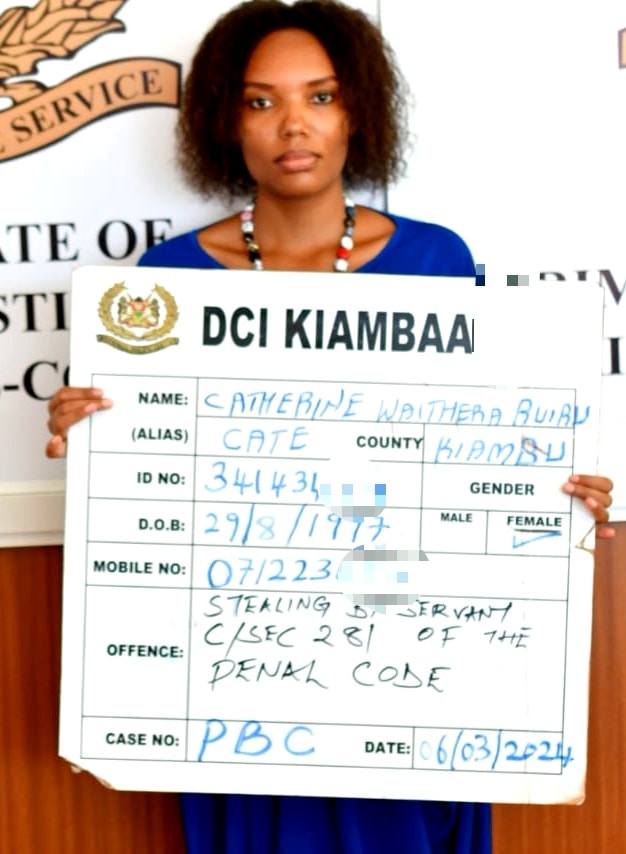 SERVICE
ATE OF
STI
RIM
I
-C
DCI KIAMBAA
NAME: CATHERINE WAITHERA RUIRU
(ALIAS) CATE COUNTY KIAMBU
ID NO: 341434 GENDER
D.O.B: 29/8/1997 MALE FEMALE
MOBILE NO: 071223
STEALING BY SERVANT
C/SEC 281 OF THE
OFFENCE: PENAL CODE
CASE NO: PBC DATE: 06/03/2024